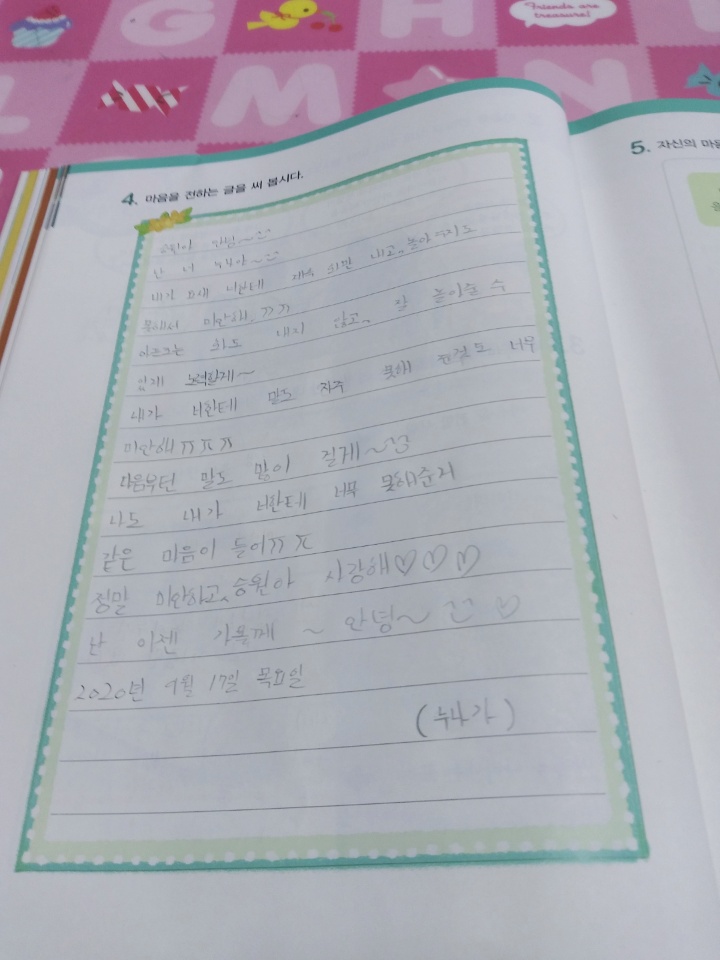 G H
L M N
Friends are treasure!
4. 마음을 전하는 글을 써 봅시다.
승원아 안녕~
난 너 누나야~
내가 요새 너한테 자꾸 화만 내고, 놀아주지도
못해서 미안해. ㅠㅠ
이르는 화도 내지 않고, 잘 놀아줄 수
있게 노력할게~
내가 너한테 말도 자주 못해 준것도 너무
미안해 ㅠㅠㅠ
다음부턴 말도 많이 걸게~
나도 내가 너한테 너무 못해준거
같은 마음이 들어ㅠㅠ
정말 미안하고, 승원아 사랑해♡♡♡
난 이젠 가볼게 ~ 안녕~ ♡
2020년 9월 17일 목요일
(누나가)
5. 자신의 마음